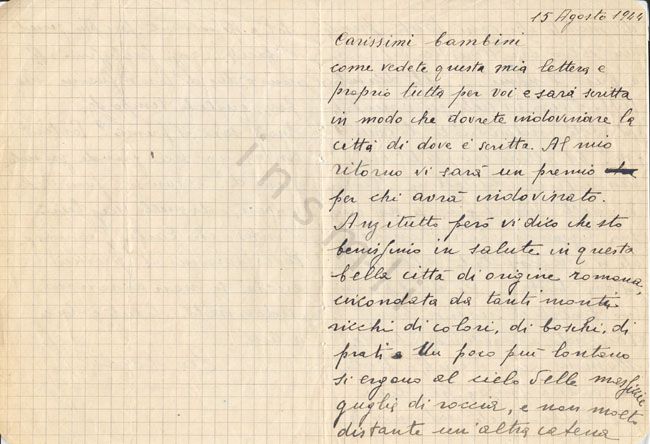 15 Agosto 1944
Carissimi bambini
come vedete questa mia lettera è
proprio tutta per voi e sarà scritta
in modo che dovrete indovinare la
città di dove è scritta. Al mio
ritorno vi sarà un premio
per chi avrà indovinato.
Anzitutto però vi dico che sto
benissimo in salute in questa
bella città di origine romana,
circondata da tanti monti
ricchi di colori, di boschi, di
prati. Un poco più lontano
si ergono al cielo delle massicce
guglie di roccia, e non molto
distante un'altra catena
insmli